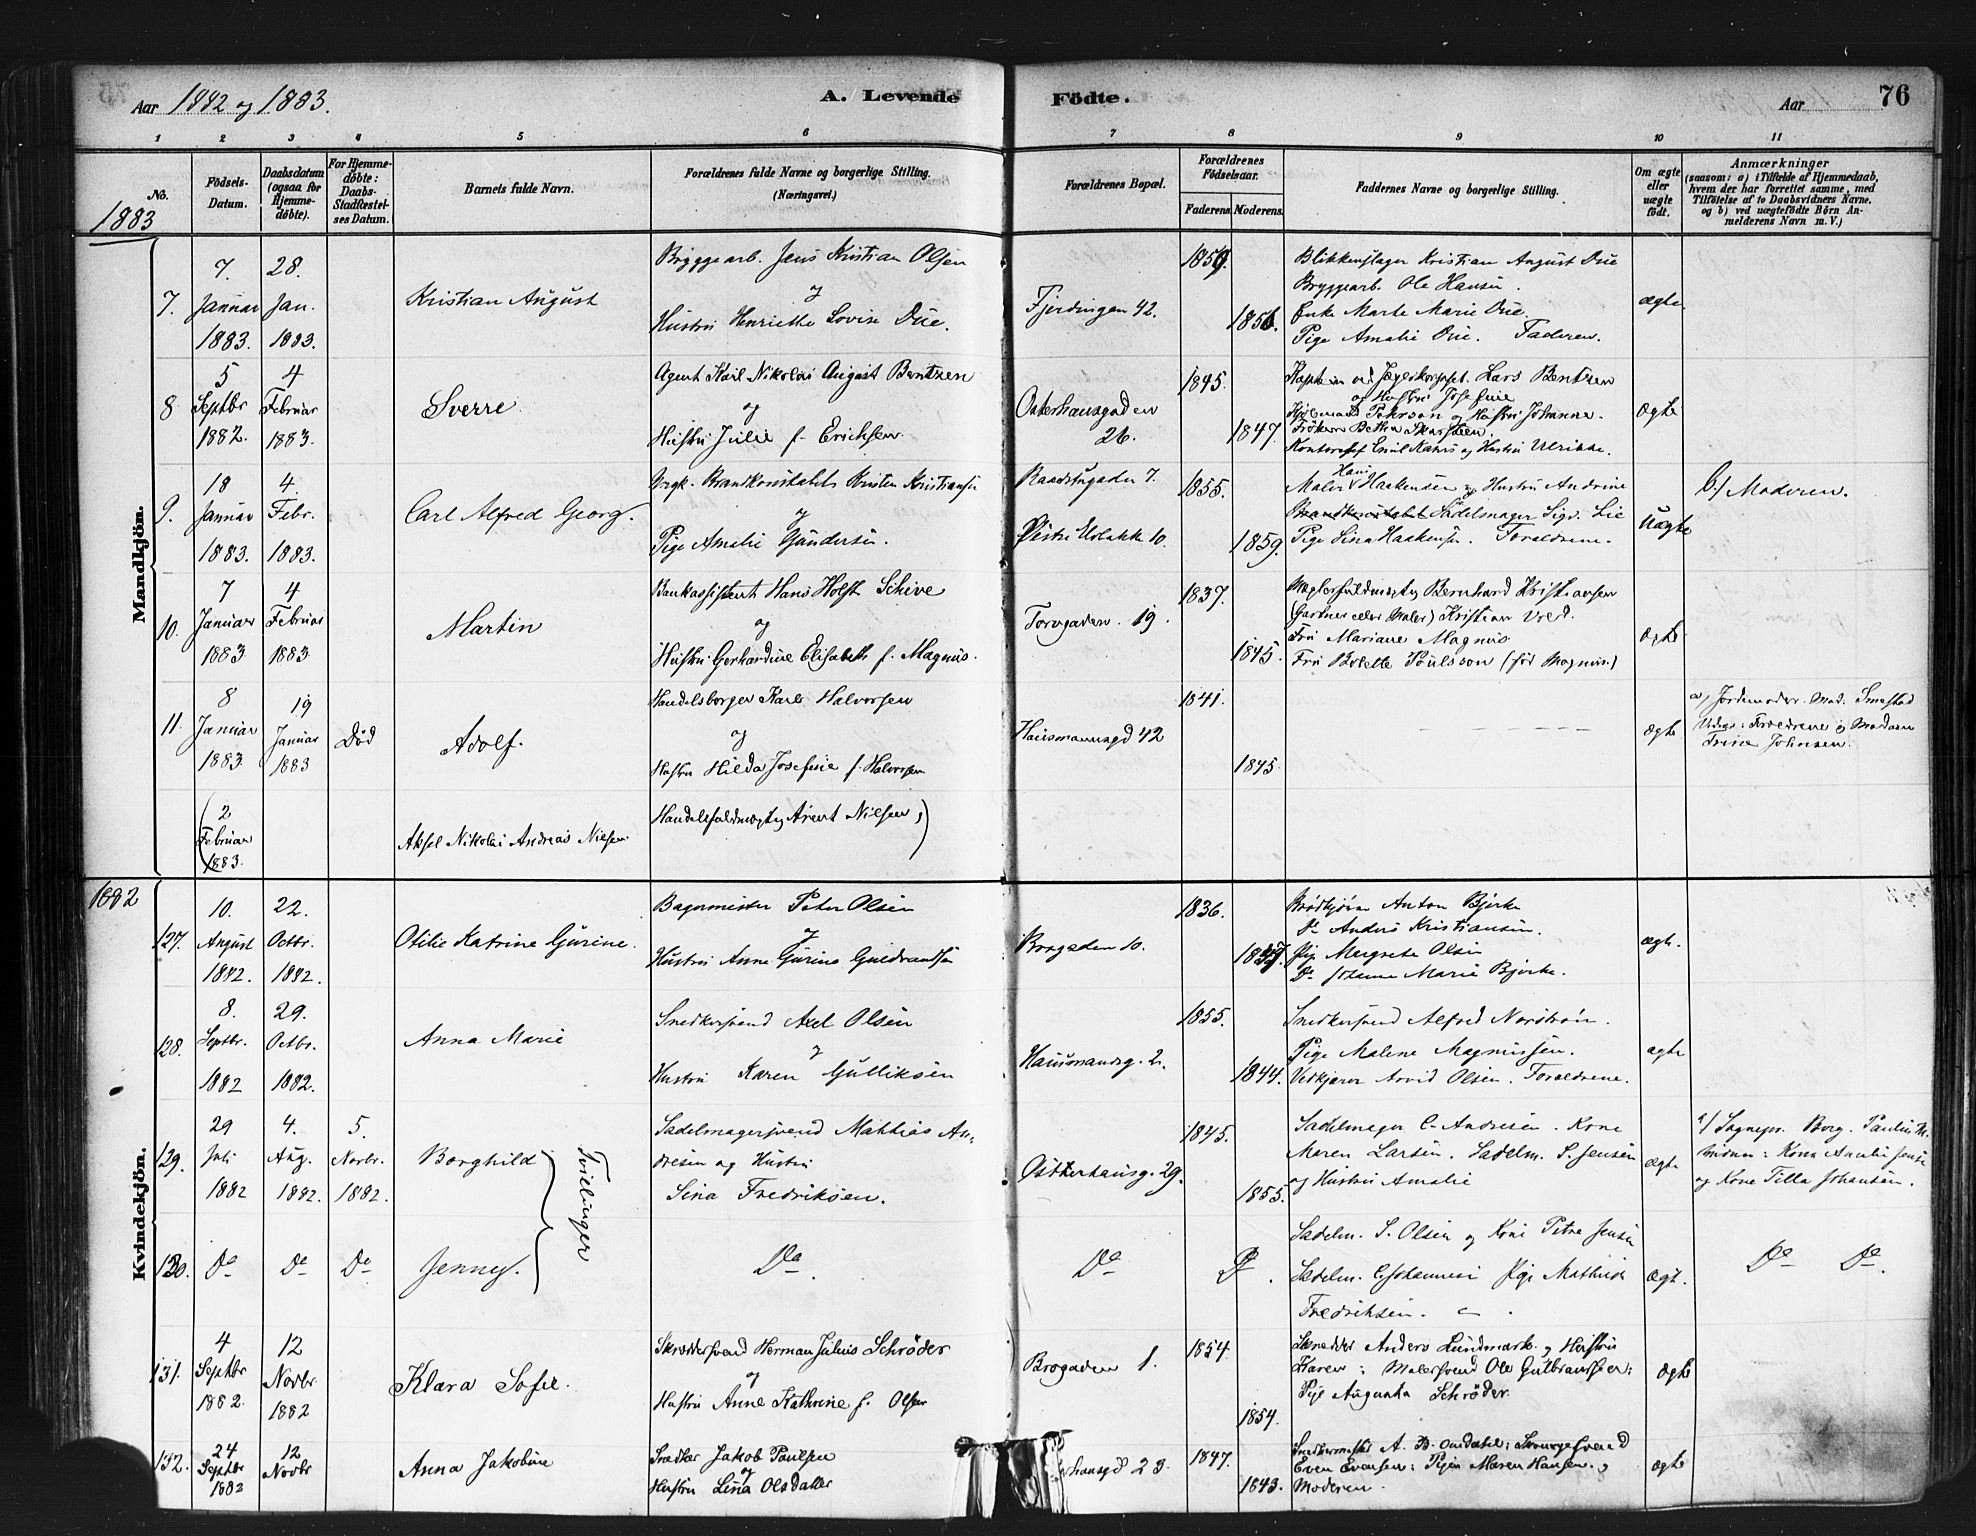 Aar 1882 og 1883.
A. Levende Födte.
Aar
76
1 2 3 4 5 6 7 8 9 10 11
No.
Födsels-Datum.
Daabsdatum (ogsaa for Hjemme-döbte).
For Hjemme-döbte: Daabs-Stadfæstel-ses Datum.
Barnets fulde Navn.
Forældrenes fulde Navne og borgerlige Stilling.
(Næringsvei.)
Forældrenes Bopæl.
Forældrenes Födselsaar.
Faderens. Moderens.
Faddernes Navne og borgerlige Stilling.
Om ægte eller uægte födt.
Anmærkninger
(saasom: a) i Tilfælde af Hjemmedaab,
hvem der har forrettet samme, med
Tilföielse af to Daabsvidners Navne,
og b) ved uægtefödte Börn An-
melderens Navn m. V.)
1883
Mandkjön.
7.
7. Januar 1883.
28. Jan. 1883.
Kristian August
Bryggearb. Jens Kristian Olsen
og
Hustru Henriette Lovise Due.
Fjerdingen 42.
1859.
1856.
Blikkenslager Kristian August Due
Bryggearb Ole Hansen.
Enke Marte Marie Due.
Pige Amalie Due. Faderen.
ægte
8
5 Septbr 1882.
4 Februar 1883.
Sverre.
Agent Karl Nikolai August Bentzen
og
Hustru Julie f. Erichsen.
Osterhausgaden
26.
1845.
1847.
Kaptein ved Jægerkorpset Lars Bentzen
og Hustru Josefine
Peterson og Hustru Johanne.
Frøken Bethia
Kontorchef Emil og Hustru Ulrikke.
ægte
9.
18 Januar 1883.
4. Febr. 1883.
Carl Alfred Georg.
Ungk. Brandkonstabel Kristen Kristiansen
og
Pige Amalie Gundersen.
Raadstugaden 7.
Østre 10.
1855.
1859.
Maler Hans Haakensen og Hustru Andrine
Brandkonstabel Sadelmager Sigv. Lie
Pige Lina Haakensen. Forældrene.
Uægte
b) Moderen.
10.
7 Januar 1883
4 Februar 1883.
Martin
Bankassistent Hans Holst Schive
og
Hustru Gerhardine Elisabeth f. Magnus.
Torvgaden. 19.
1837.
1845.
Mæglerfuldmægtig Bernhard Kristiansen
(Gartner eller Maler) Kristian Vred.
Fru Mariane Magnus.
Fru Bolette Poulsson (fød Magnus)
ægte
11.
8 Januar 1883.
19 Januar 1883
Død
Adolf.
Handelsborger Karl Halvorsen
og
Hustru Hilda Josefine f. Halvorsen
Hausmannsgd 42
1841.
1845.
ægte
a) Jordemoder Mad. Smestad
Vidner: Forældrene og Madam
Trine Johnsen.
(2 Februar 1883.
Aksel Nikolai Andreas Nielsen
Handelsfuldmægtig Arent Nielsen,)
1882
Kvindekjön.
127.
10. August 1882.
22. Octbr. 1882.
Otilie Katrine Gurine.
Bagermester Peter Olsen
og
Hustru Anne Gurine Guldrandsen
Brogaden 10.
1836.
Brødkjører Anton Bjerke
Do Anders Kristiansen.
Pige Margrete Olsen
Do Johanne Marie Bjerke.
ægte.
128.
8. Septbr. 1882
29. Octbr. 1882.
Anna Marie
Snedkersvend Axel Olsen
og
Hustru Karen Gulliksen
Hausmandsg. 2.
1855.
1844.
Snedkersvend Alfred Norström.
Pige Malene Magnussen.
Vedkjører Arvid Olsen. Forældrene.
ægte
129.
29 Juli 1882
4. Aug. 1882.
5. Novbr. 1882.
Borghild
Tvillinger
Sadelmagersvend Mathias An-
dresen og Hustru
Lina Fredriksen.
Osterhausg. 29.
1845.
1855.
Sadelmager C. Andresen. Kone
Maren Larsen. Sadelm. S. Jensen
og Hustru Amalie
ægte
a) Sognepr. Borg. Paulus M.
Vidner: Kone Amalie Jensen
og Kone Tilla Johansen.
130.
Do Do Do
Jenny.
Do
Do
Do
Sadelm. S. Olsen og Kone Petra Jensen
Sadelm. C. Johannesen Pige Mathilde
Fredriksen.
ægt.
Do Do
131.
4 Septbr 1882.
12 Novbr. 1882
Klara Sofie.
Skræddersvend Herman Julius Schrøder
og
Hustru Anne Kathrine f. Olsen
Brogaden 1.
1854.
1854.
Skrædder Anders Lundmark og Hustru
Karen: Malersvend Ole Gulbrandsen:
Pige Augusta Schrøder.
ægte
132.
24 Septbr 1882
12 Novbr
Anna Jakobine
Snedker Jakob Paulsen
og
Hustru Lina Olsdatter
rhausgd 23.
1847.
1843.
Snedkermester A. B. Omdahl:
Even Evensen: Pigen Maren Hansen. og
Moderen.
ægte